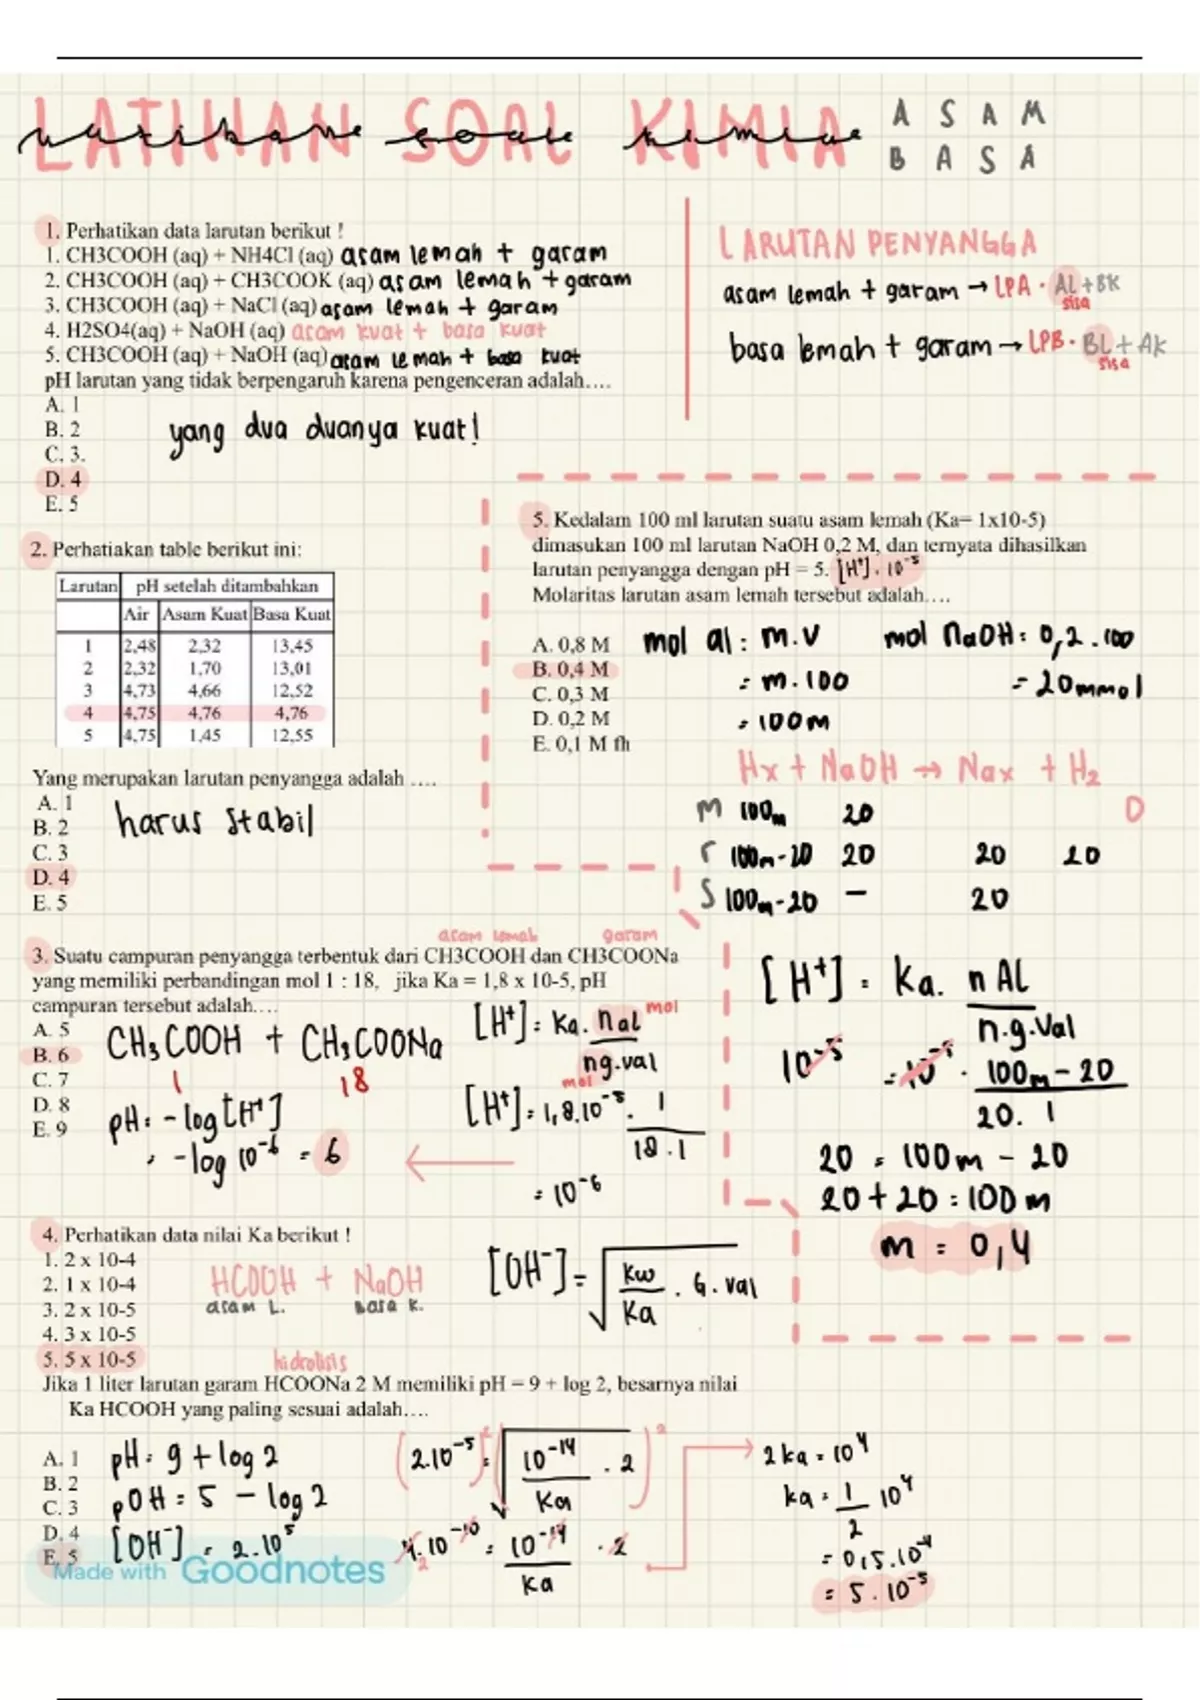 LATIHAN SOAL KIMIA
latihan soal kimia
ASAM
BASA
1. Perhatikan data larutan berikut !
1. CH3COOH (aq) + NH4Cl (aq) asam lemah + garam
2. CH3COOH (aq) + CH3COOK (aq) asam lemah + garam
3. CH3COOH (aq) + NaCl (aq) asam lemah + garam
4. H2SO4(aq) + NaOH (aq) asam kuat + basa kuat
5. CH3COOH (aq) + NaOH (aq) asam lemah + basa kuat
pH larutan yang tidak berpengaruh karena pengenceran adalah....
A. 1
B. 2
C. 3.
D. 4
E. 5
yang dua duanya kuat!
LARUTAN PENYANGGA
asam lemah + garam → LPA · AL + BK
sisa
basa lemah + garam → LPB · BL + AK
sisa
2. Perhatiakan table berikut ini:
Larutan pH setelah ditambahkan
Air Asam Kuat Basa Kuat
1 2,48 2,32 13,45
2 2,32 1,70 13,01
3 4,73 4,66 12,52
4 4,75 4,76 4,76
5 4,75 1,45 12,55
Yang merupakan larutan penyangga adalah ....
A. 1
B. 2
C. 3
D. 4
E. 5
harus stabil
5. Kedalam 100 ml larutan suatu asam lemah (Ka= 1x10-5)
dimasukan 100 ml larutan NaOH 0,2 M, dan ternyata dihasilkan
larutan penyangga dengan pH = 5. [H⁺] = 10⁻⁵
Molaritas larutan asam lemah tersebut adalah....
A. 0,8 M
B. 0,4 M
C. 0,3 M
D. 0,2 M
E. 0,1 M fh
mol al = m.v
= m.100
= 100m
mol NaOH = 0,2 . 100
= 20mmol
Hx + NaOH → Nax + H2
O
M 100m 20
r 100m-20 20 20 20
S 100m-20 — 20
[H⁺] = Ka. n AL
n.g.val
10⁻⁵ = 10⁻⁵ . 100m - 20
20. 1
20 = 100m - 20
20 + 20 = 100m
m = 0,4
asam lemah garam
3. Suatu campuran penyangga terbentuk dari CH3COOH dan CH3COONa
yang memiliki perbandingan mol 1 : 18, jika Ka = 1,8 x 10-5, pH
campuran tersebut adalah....
A. 5
B. 6
C. 7
D. 8
E. 9
CH₃COOH + CH₃COONa
1 18
pH = -log[H⁺]
= -log 10⁻⁶ = 6
[H⁺] = Ka. nal mol
ng.val
mol
[H⁺] = 1,8.10⁻⁵. 1
18.1
= 10⁻⁶
4. Perhatikan data nilai Ka berikut !
1. 2 x 10-4
2. 1 x 10-4
3. 2 x 10-5
4. 3 x 10-5
5. 5 x 10-5
HCOOH + NaOH
asam L. basa K.
hidrolisis
[OH⁻] = √ Kw . G. val
Ka
Jika 1 liter larutan garam HCOONa 2 M memiliki pH = 9 + log 2, besarnya nilai
Ka HCOOH yang paling sesuai adalah....
A. 1
B. 2
C. 3
D. 4
E. 5
pH = 9 + log 2
pOH = 5 - log 2
[OH⁻] = 2.10⁵
(2.10⁻⁵)² = (√ 10⁻¹⁴ . 2)²
Ka
4.10⁻¹⁰ = 10⁻¹⁴ . 2
2
Ka
2 ka = 10⁴
ka = 1 10⁴
2
= 0,5.10⁻⁴
= 5.10⁻⁵
Made with Goodnotes